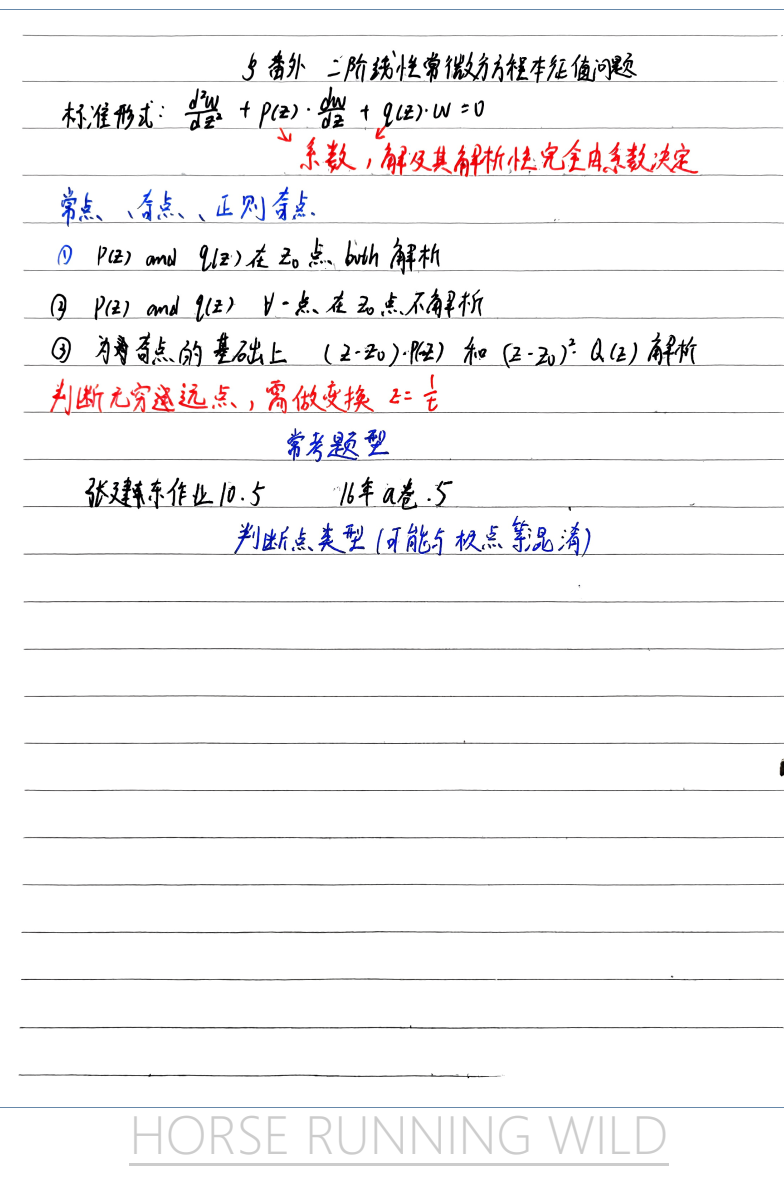 § 番外 二阶线性常微分方程本征值问题
标准形式: d²w/dz² + p(z)·dw/dz + q(z)·w = 0
系数,解及其解析性完全由系数决定
常点、奇点、正则奇点
① p(z) and q(z) 在 z₀ 点 both 解析
② p(z) and q(z) ∀一点在 z₀ 点不解析
③ 为奇点的基础上 (z-z₀)·p(z) 和 (z-z₀)²·Q(z) 解析
判断无穷远点,需做变换 z=1/t
常考题型
张建东作业10.5 16年a卷.5
判断点类型(可能与极点等混淆)
HORSE RUNNING WILD